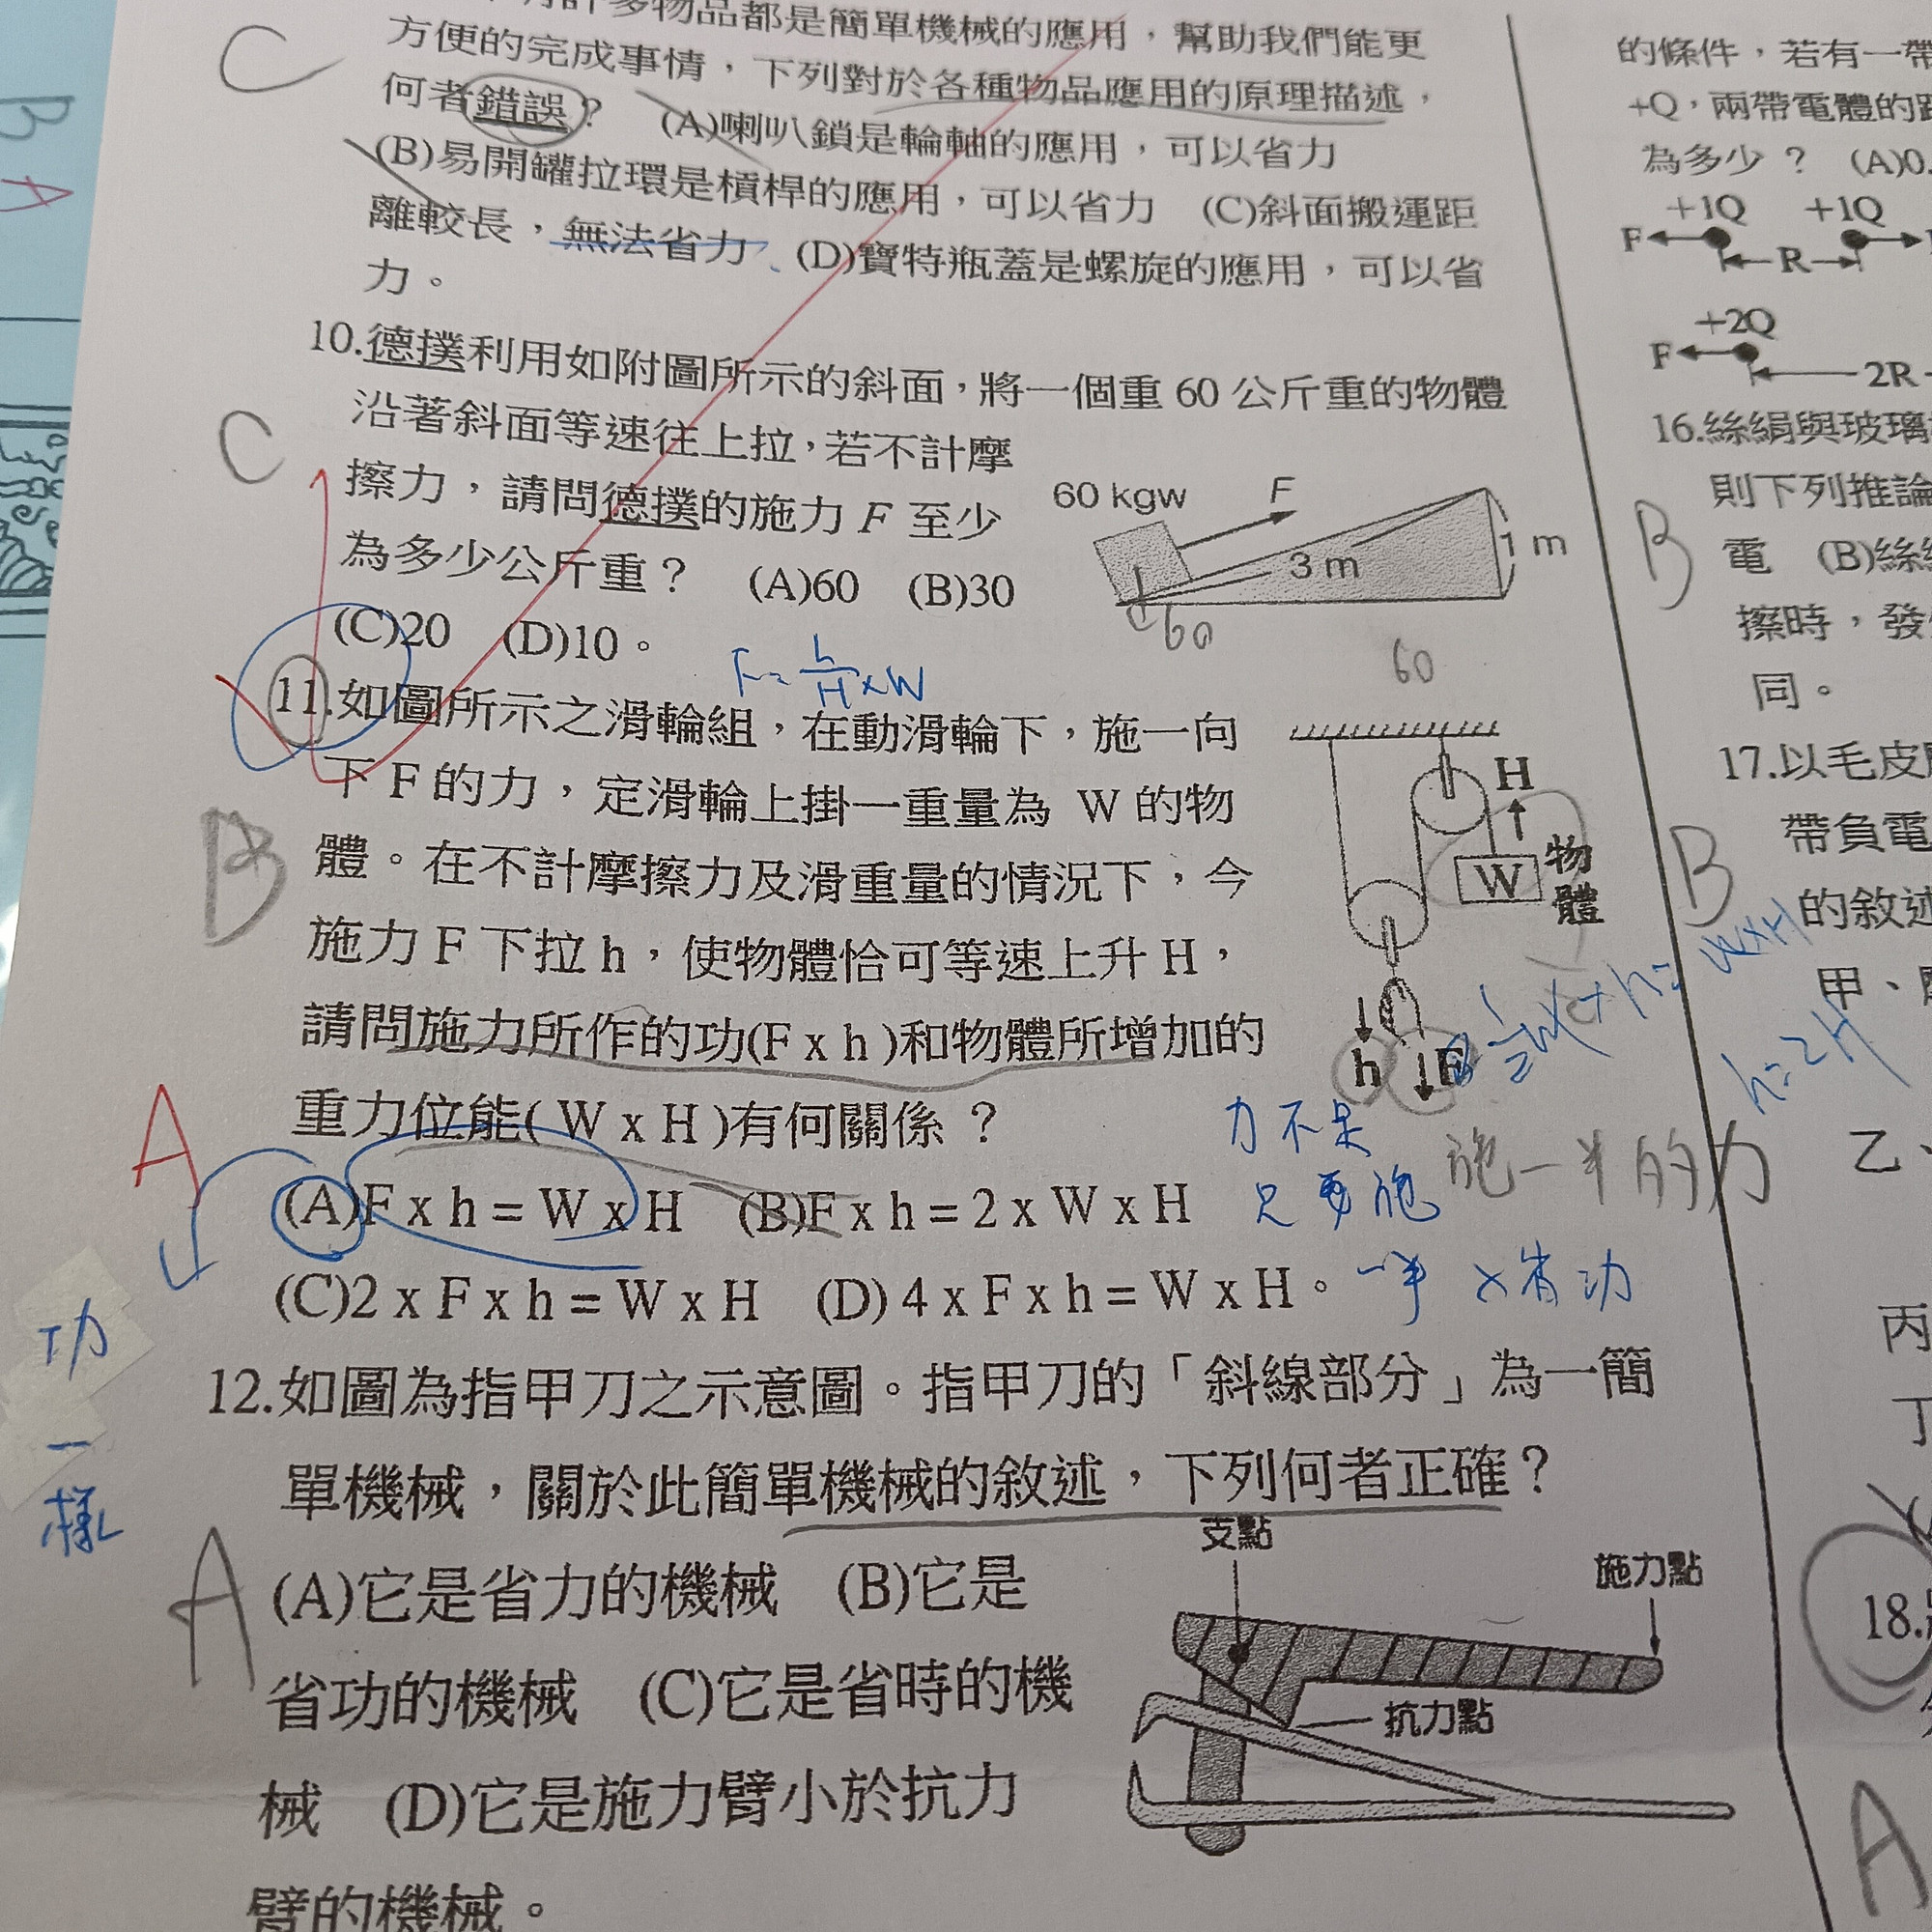 物品都是簡單機械的應用，幫助我們能更
C
方便的完成事情，下列對於各種物品應用的原理描述，
何者錯誤？ (A)喇叭鎖是輪軸的應用，可以省力
(B)易開罐拉環是槓桿的應用，可以省力 (C)斜面搬運距
離較長，無法省力、(D)寶特瓶蓋是螺旋的應用，可以省
力。
10.德撲利用如附圖所示的斜面，將一個重 60 公斤重的物體
C
沿著斜面等速往上拉，若不計摩
擦力，請問德撲的施力 F 至少
為多少公斤重？ (A)60 (B)30
(C)20 (D)10。
60 kgw
F
3 m
1 m
60
60
F=h/H×W
11.如圖所示之滑輪組，在動滑輪下，施一向
下 F 的力，定滑輪上掛一重量為 W 的物
B
體。在不計摩擦力及滑重量的情況下，今
施力 F 下拉 h，使物體恰可等速上升 H，
請問施力所作的功(F x h )和物體所增加的
重力位能( W x H )有何關係？
A
(A)F x h = W x H (B)F x h = 2 x W x H
(C)2 x F x h = W x H (D) 4 x F x h = W x H。
H
W
物體
h
F
h=2H
力不是
只要施
一半 ×省功
施一半的力
功
一
樣
12.如圖為指甲刀之示意圖。指甲刀的「斜線部分」為一簡
單機械，關於此簡單機械的敘述，下列何者正確？
A
(A)它是省力的機械 (B)它是
省功的機械 (C)它是省時的機
械 (D)它是施力臂小於抗力
臂的機械。
支點
施力點
抗力點
B
A
的條件，若有一帶
+Q，兩帶電體的
為多少？ (A)0.
+1Q +1Q
F R
+2Q
F 2R
16.絲絹與玻璃
則下列推論
B
電 (B)絲
擦時，發
同。
17.以毛皮
帶負電
B
的敘述
甲、
乙、
丙
丁
18.
A